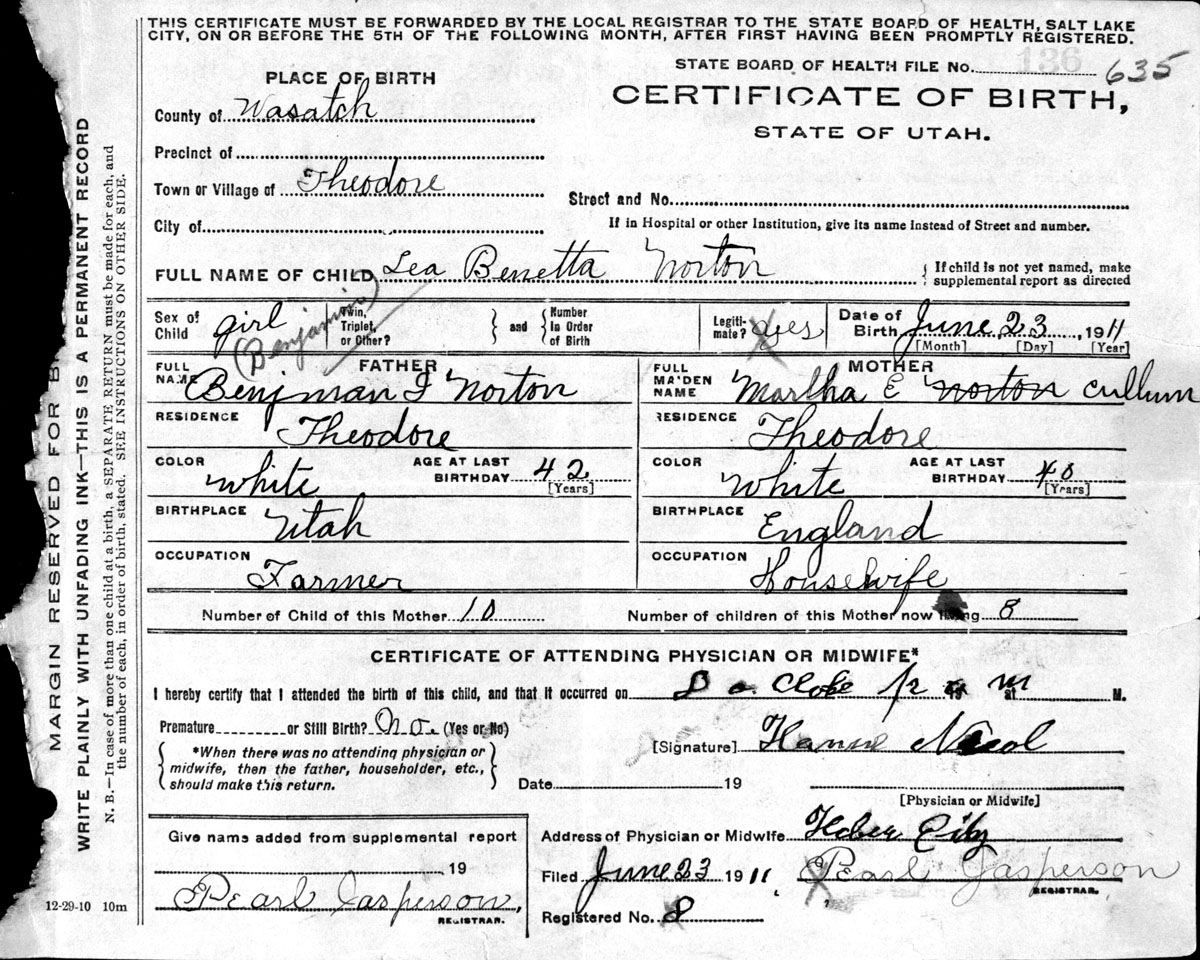 THIS CERTIFICATE MUST BE FORWARDED BY THE LOCAL REGISTRAR TO THE STATE BOARD OF HEALTH, SALT LAKE
CITY, ON OR BEFORE THE 5TH OF THE FOLLOWING MONTH, AFTER FIRST HAVING BEEN PROMPTLY REGISTERED.
PLACE OF BIRTH
STATE BOARD OF HEALTH FILE No. 136 635
County of Wasatch
CERTIFICATE OF BIRTH,
STATE OF UTAH.
Precinct of
Town or Village of Theodore
Street and No.
City of
If in Hospital or other Institution, give its name instead of Street and number.
FULL NAME OF CHILD Lea Benetta Norton
If child is not yet named, make
supplemental report as directed
Sex of
Child girl
Twin,
Triplet,
or Other?
and
Number
in Order
of Birth
Legiti-
mate? yes
Date of
Birth June 23, 1911
[Month] [Day] [Year]
(Benjamin)
FATHER
FULL
NAME Benjman I Norton
RESIDENCE Theodore
COLOR White
AGE AT LAST
BIRTHDAY 42
[Years]
BIRTHPLACE Utah
OCCUPATION Farmer
MOTHER
FULL
MAIDEN
NAME Martha E Norton Cullum
RESIDENCE Theodore
COLOR White
AGE AT LAST
BIRTHDAY 40
[Years]
BIRTHPLACE England
OCCUPATION Housewife
Number of Child of this Mother 10
Number of children of this Mother now living 8
CERTIFICATE OF ATTENDING PHYSICIAN OR MIDWIFE*
I hereby certify that I attended the birth of this child, and that it occurred on at M.
Premature or Still Birth? No. (Yes or No)
*When there was no attending physician or
midwife, then the father, householder, etc.,
should make this return.
[Signature] Hanne Nicol
Date 19
[Physician or Midwife]
Give name added from supplemental report
19
Pearl Jasperson,
REGISTRAR.
Address of Physician or Midwife Heber City
Filed June 23 1911, Pearl Jasperson
REGISTRAR.
Registered No. 8
12-29-10 10m
MARGIN RESERVED FOR B
WRITE PLAINLY WITH UNFADING INK—THIS IS A PERMANENT RECORD
N. B.—In case of more than one child at a birth, a SEPARATE RETURN must be made for each, and
the number of each, in order of birth, stated. SEE INSTRUCTIONS ON OTHER SIDE.